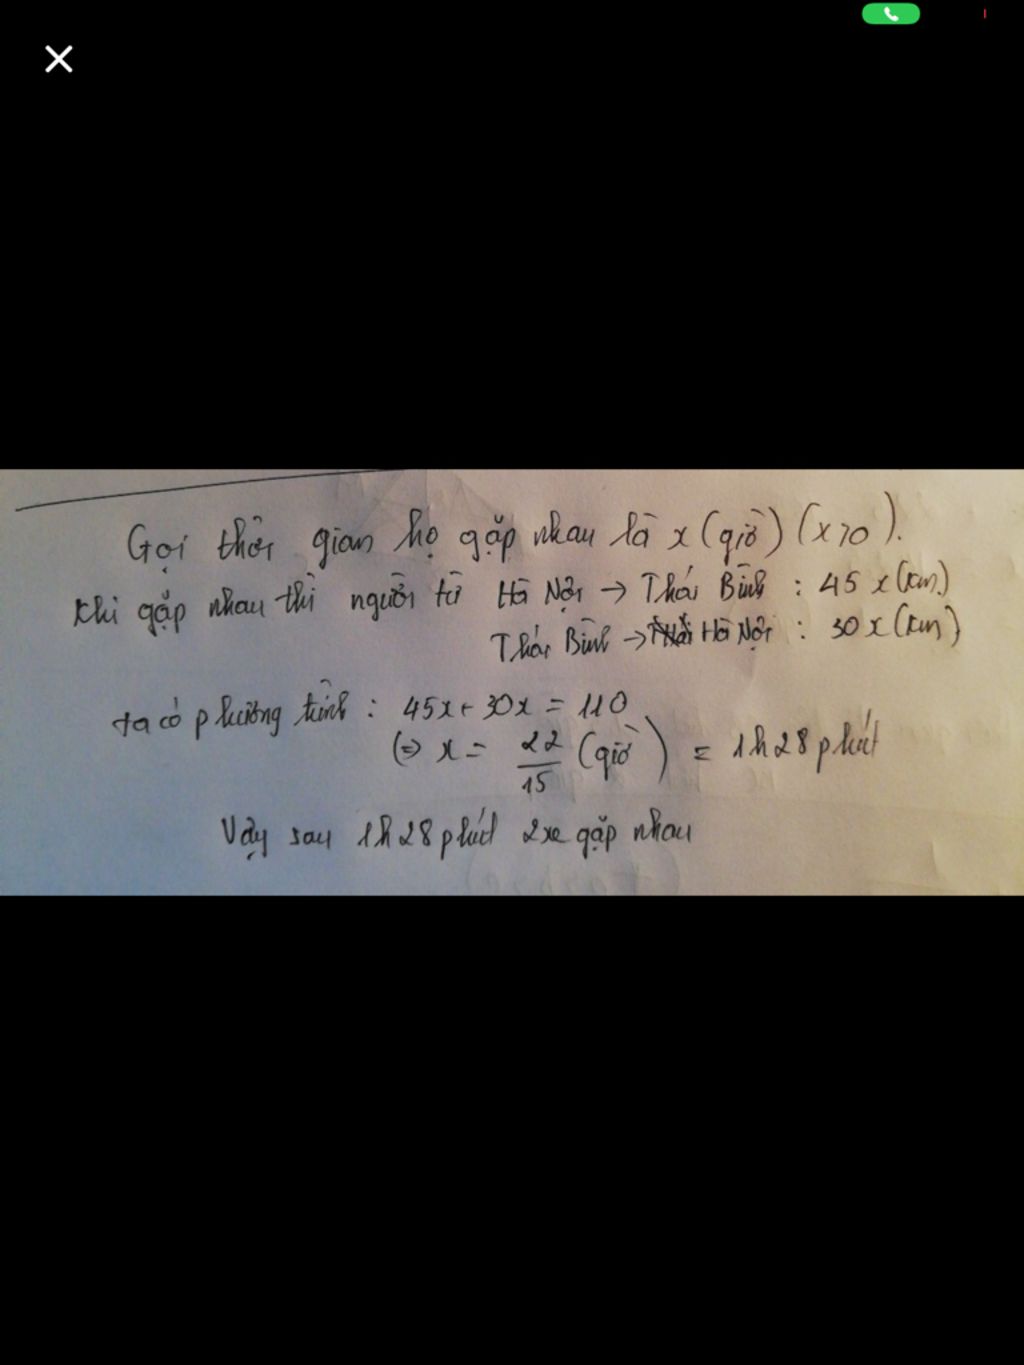 Gọi thời gian họ gặp nhau là x (giờ) (x>0).
Khi gặp nhau thì người từ Hà Nội → Thái Bình : 45x (km)
Thái Bình → Hà Nội : 30x (km)
ta có phương trình : 45x + 30x = 110
(=> x = 22/15 (giờ) = 1h28 phút
Vậy sau 1h28 phút 2xe gặp nhau